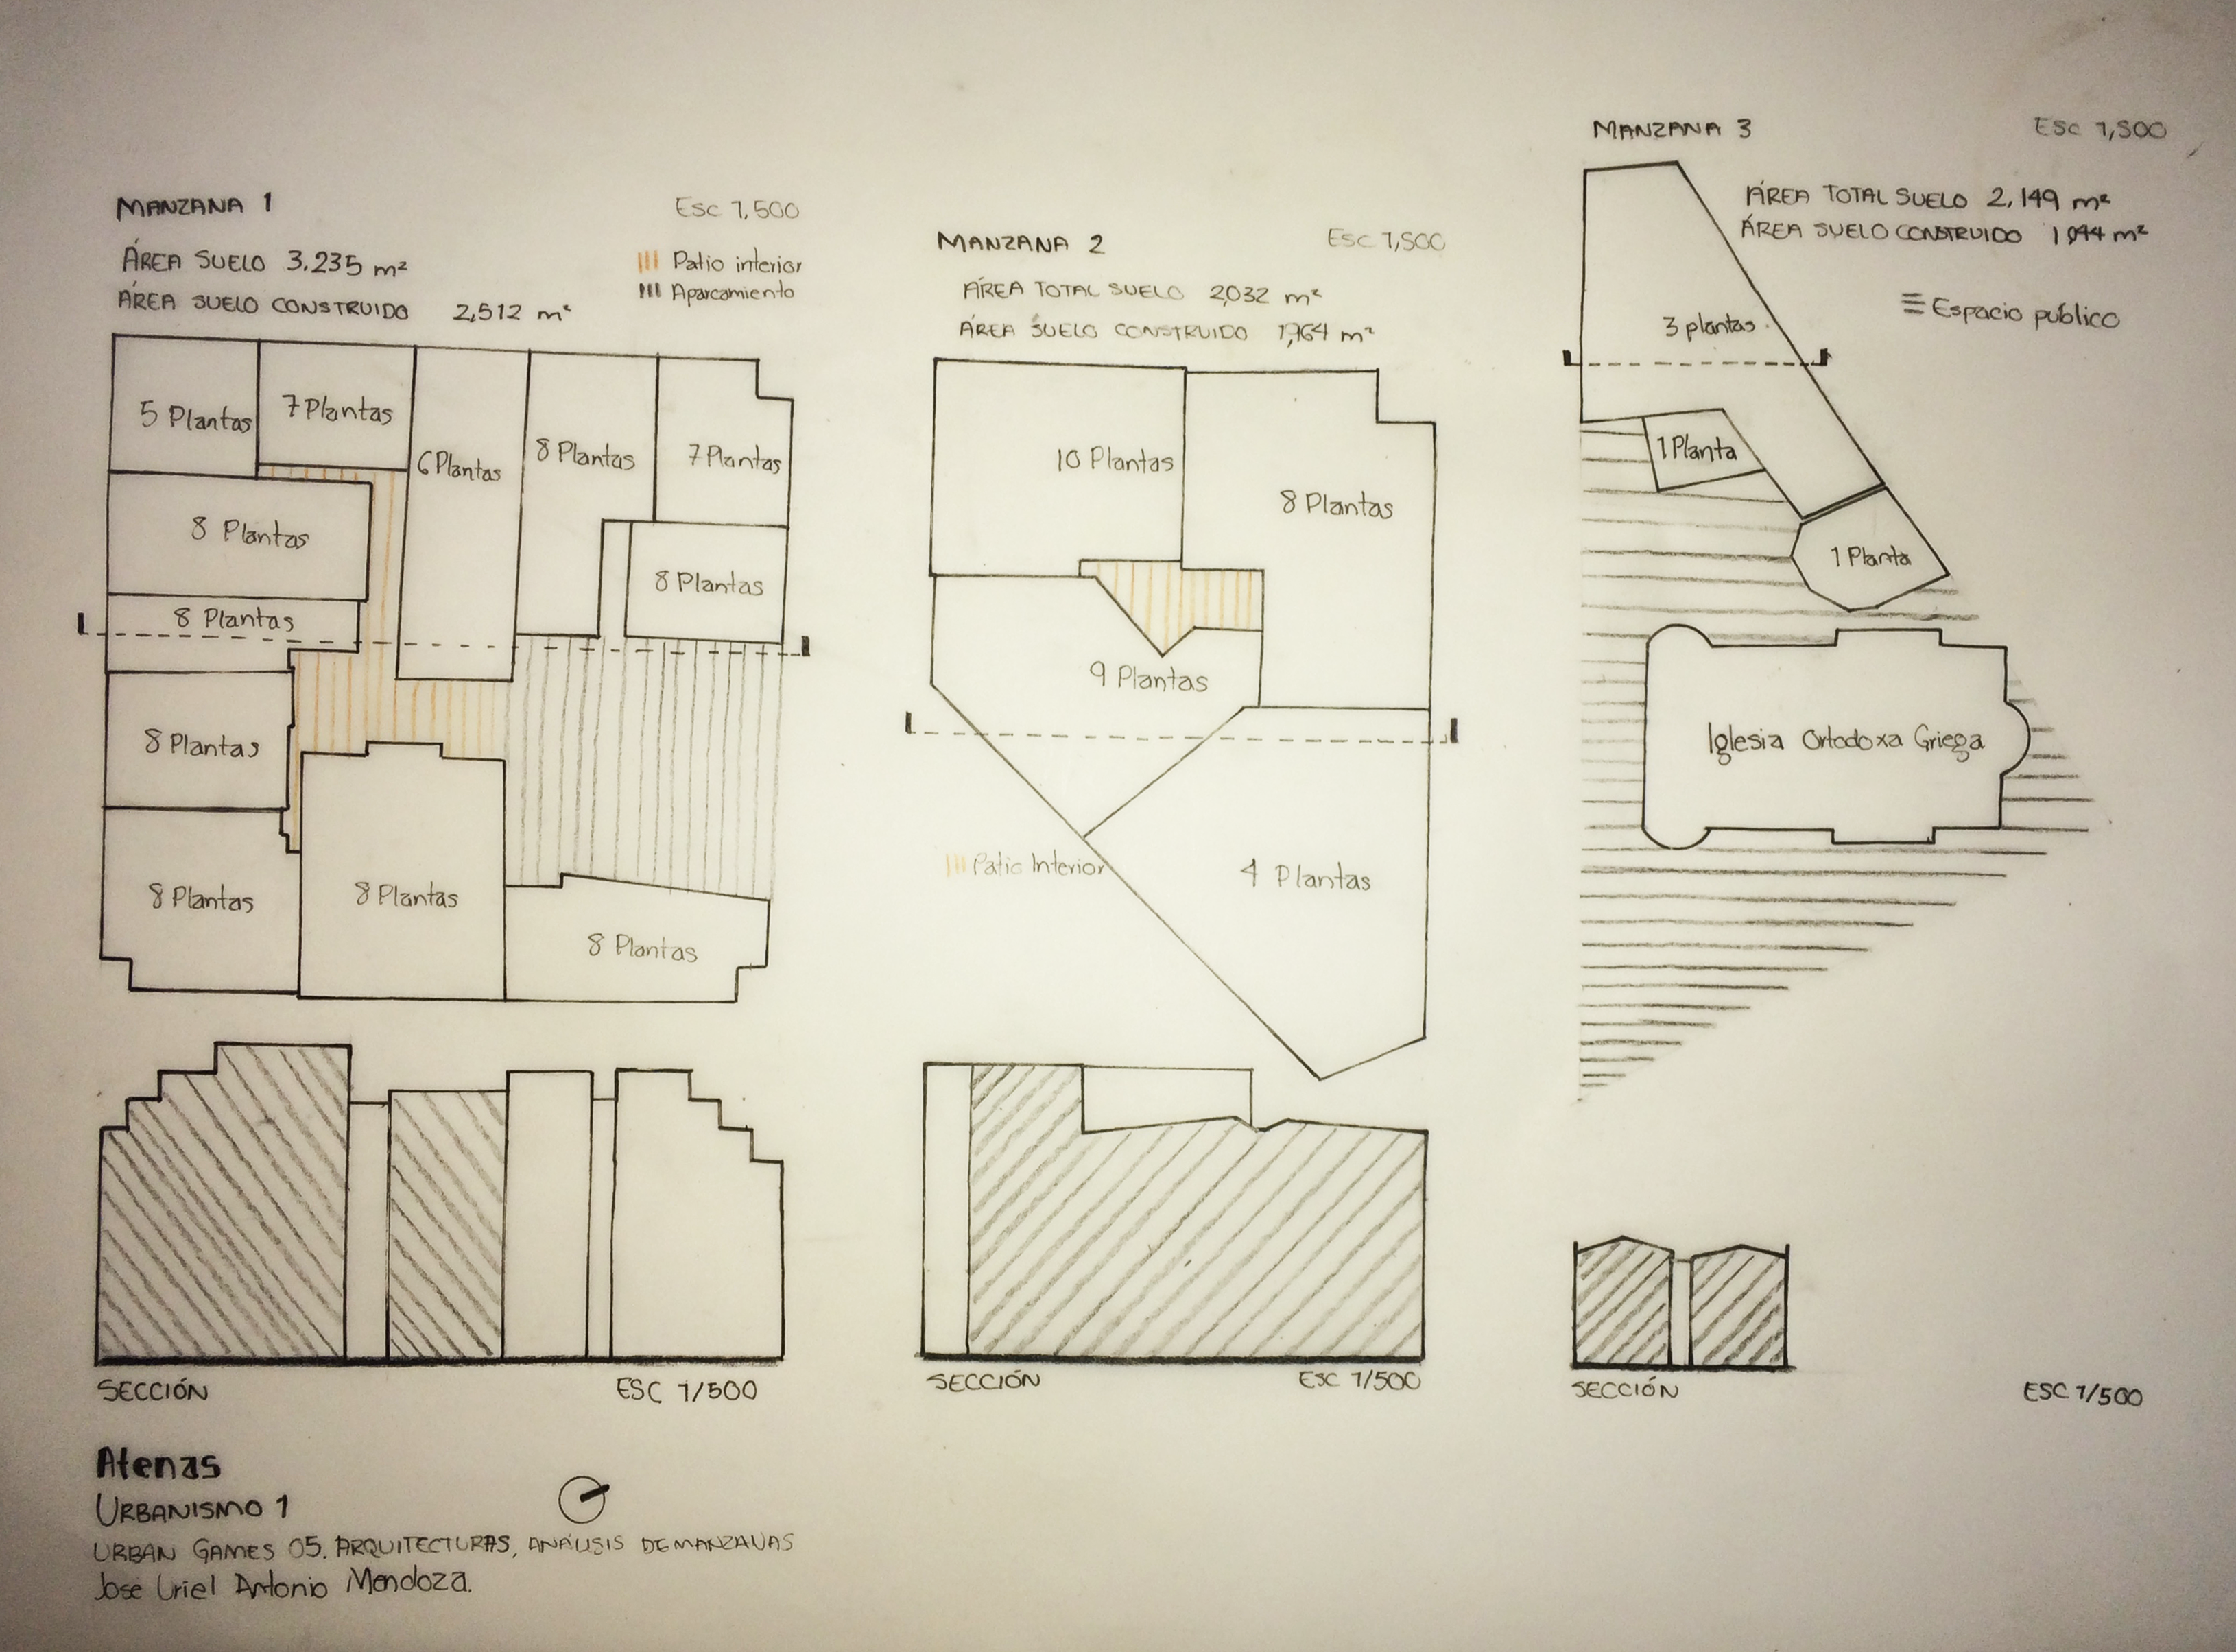 MANZANA 1
Esc 1,500
ÁREA SUELO 3,235 m²
ÁREA SUELO CONSTRUIDO 2,512 m²
Patio interior
Aparcamiento
5 Plantas
7 Plantas
6 Plantas
8 Plantas
7 Plantas
8 Plantas
8 Plantas
8 Plantas
8 Plantas
8 Plantas
8 Plantas
8 Plantas
SECCIÓN
ESC 1/500
MANZANA 2
Esc 1,500
ÁREA TOTAL SUELO 2,032 m²
ÁREA SUELO CONSTRUIDO m²
10 Plantas
8 Plantas
9 Plantas
Patio Interior
4 Plantas
SECCIÓN
ESC 1/500
MANZANA 3
Esc 1,500
ÁREA TOTAL SUELO 2,149 m²
ÁREA SUELO CONSTRUIDO m²
Espacio público
3 plantas
1 Planta
1 Planta
Iglesia Ortodoxa Griega
SECCIÓN
ESC 1/500
Atenas
URBANISMO 1
URBAN GAMES 05. ARQUITECTURAS, ANÁLISIS DE MANZANAS
Jose Uriel Antonio Mendoza.